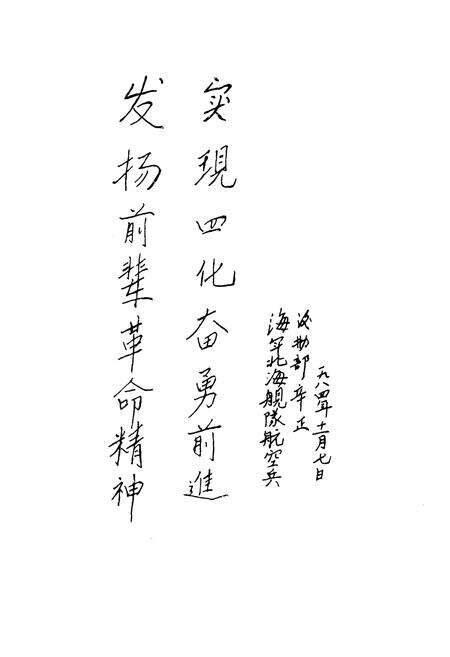 发扬前辈革命精神
实現四化奋勇前進
海军北海舰隊航空兵
後勤部辛正
一九八四年十一月七日